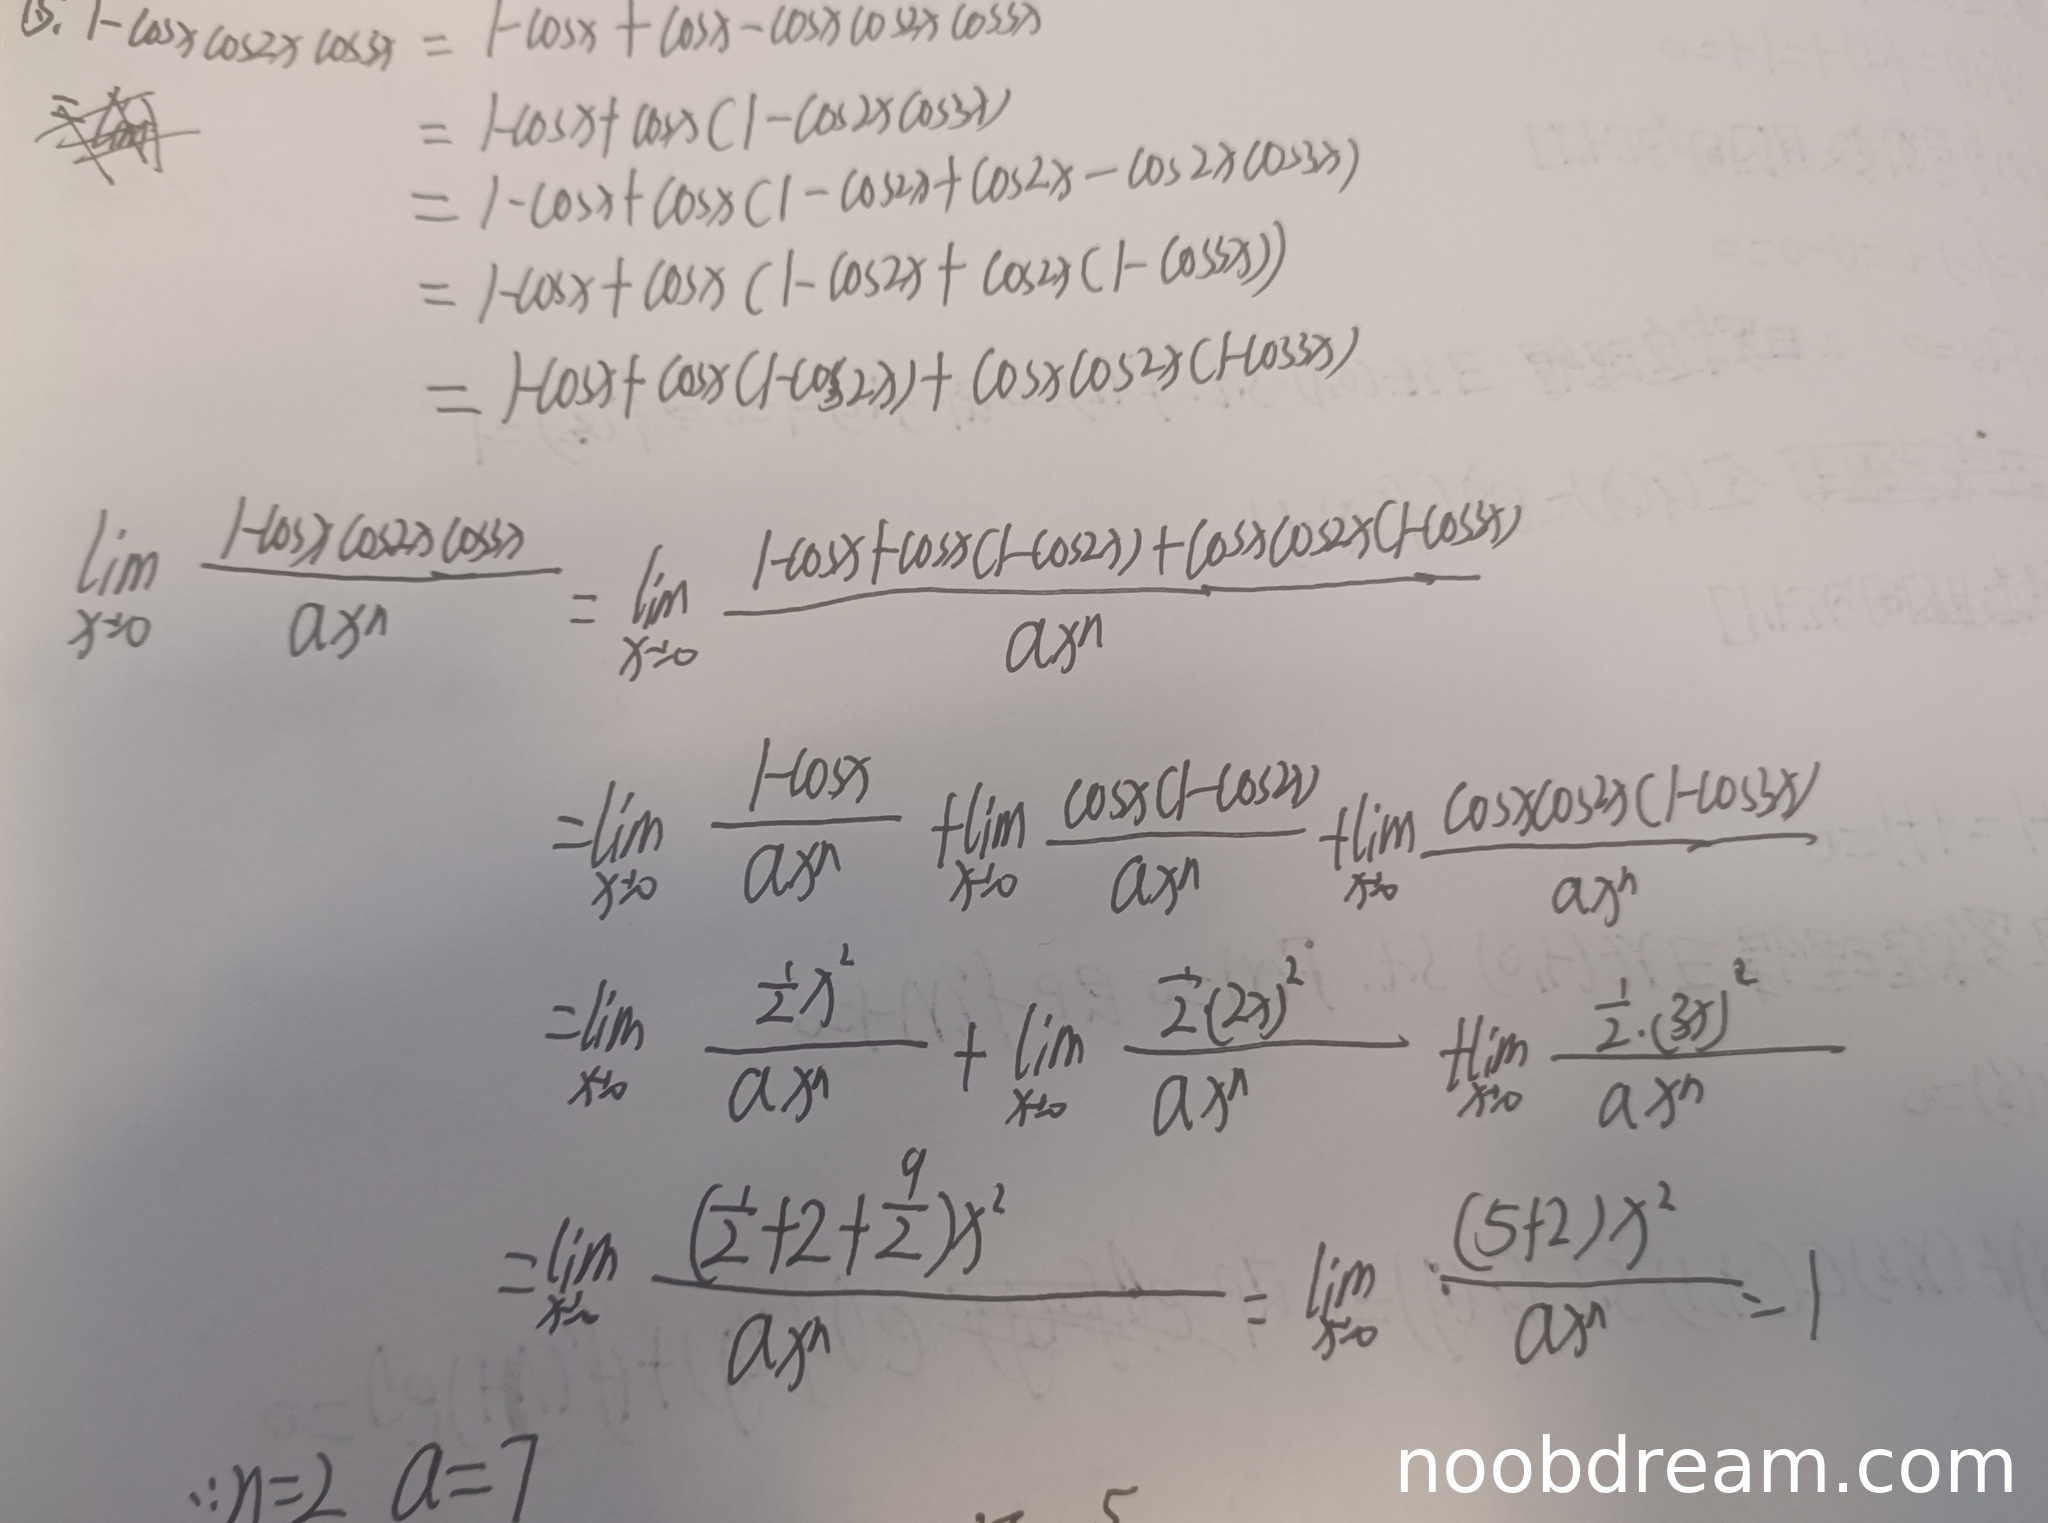 15. 1-cosxcos2xcos3x = 1-cosx+cosx-cosxcos2xcos3x
= 1-cosx+cosx(1-cos2xcos3x)
= 1-cosx+cosx(1-cos2x+cos2x-cos2xcos3x)
= 1-cosx+cosx(1-cos2x+cos2x(1-cos3x))
= 1-cosx+cosx(1-cos2x)+cosxcos2x(1-cos3x)
lim_{x→0} \frac{1-cosxcos2xcos3x}{ax^n} = lim_{x→0} \frac{1-cosx+cosx(1-cos2x)+cosxcos2x(1-cos3x)}{ax^n}
= lim_{x→0} \frac{1-cosx}{ax^n} + lim_{x→0} \frac{cosx(1-cos2x)}{ax^n} + lim_{x→0} \frac{cosxcos2x(1-cos3x)}{ax^n}
= lim_{x→0} \frac{\frac{1}{2}x^2}{ax^n} + lim_{x→0} \frac{\frac{1}{2}·(2x)^2}{ax^n} + lim_{x→0} \frac{\frac{1}{2}·(3x)^2}{ax^n}
= lim_{x→0} \frac{(\frac{1}{2}+2+\frac{9}{2})x^2}{ax^n} = lim_{x→0} \frac{(5+2)x^2}{ax^n} = 1
∴n=2 a=7
noobdream.com